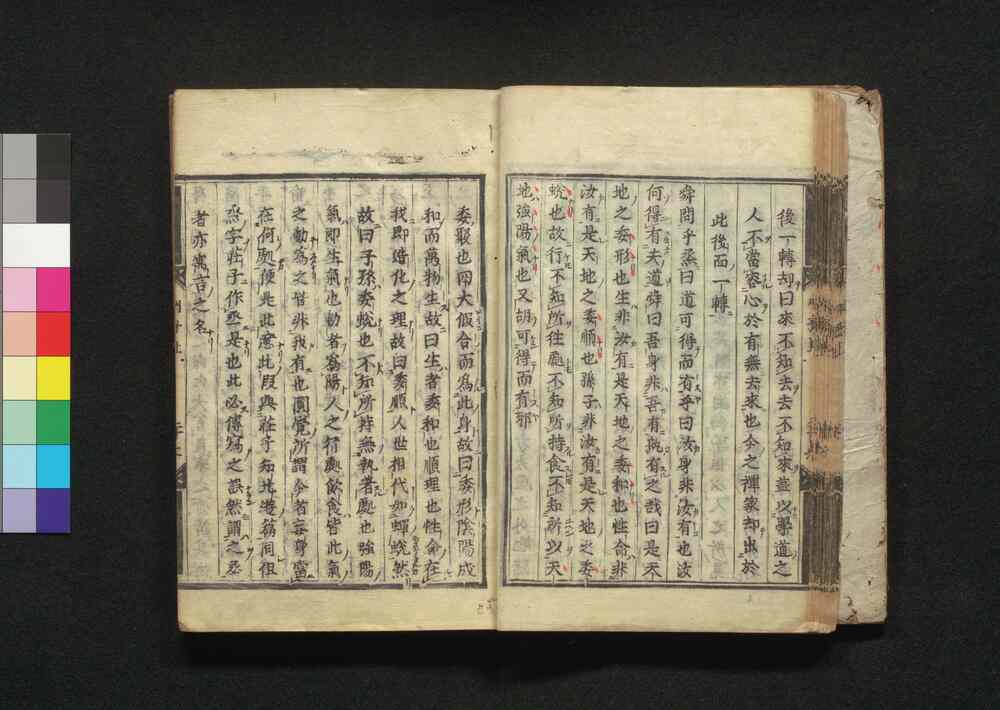 後一轉却曰來不知去去不知來蓋以學道之
人不當容心於有無去來也今之禪家却出於
此後面一轉
舜問乎烝曰道可得而有乎曰汝身非汝有也汝
何得有夫道舜曰吾身非吾有孰有之哉曰是天
地之委形也生非汝有是天地之委和也性命非
汝有是天地之委順也孫子非汝有是天地之委
蛻也故行不知所往處不知所持食不知所以天
地強陽氣也又胡可得而有邪
委聚也四大假合而為此身故曰委形陰陽成
和而萬物生故曰生者委和也順理也性命在
我即造化之理故曰委順人世相代如蟬蛻然
故曰子孫委蛻也不知所持無執著處也強陽
氣即生氣也動者為陽人之行處飲食皆此氣
之動為之皆非我有也圓覺所謂今者妄身當
在何處便是此意此段與莊子知北遊篇同但
烝字莊子作丞是也此必傳寫之誤然謂之丞
者亦寓言之名